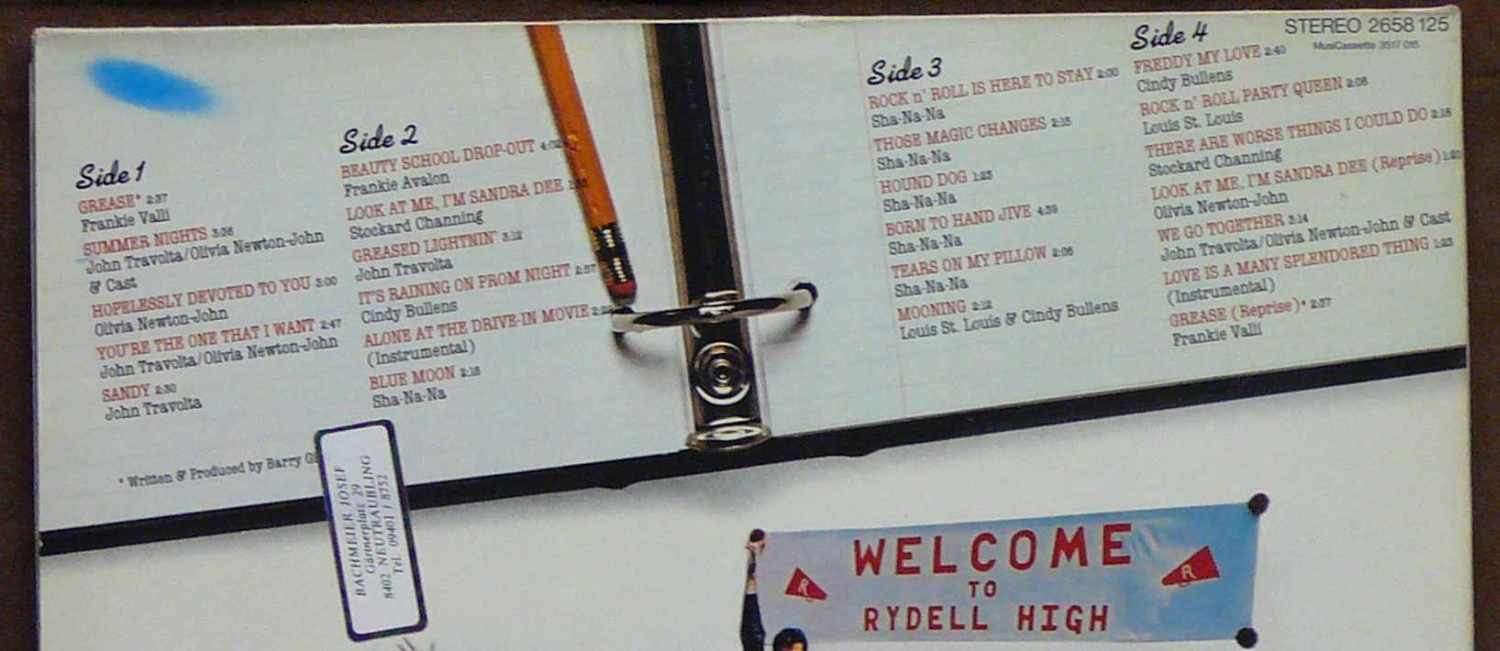 Side 1
GREASE* 2:37
Frankie Valli
SUMMER NIGHTS 3:36
John Travolta/Olivia Newton-John
& Cast
HOPELESSLY DEVOTED TO YOU 3:00
Olivia Newton-John
YOU'RE THE ONE THAT I WANT 2:47
John Travolta/Olivia Newton-John
SANDY 2:30
John Travolta
* Written & Produced by Barry
Side 2
BEAUTY SCHOOL DROP-OUT 4:02
Frankie Avalon
LOOK AT ME, I'M SANDRA DEE
Stockard Channing
GREASED LIGHTNIN' 3:12
John Travolta
IT'S RAINING ON PROM NIGHT 2:57
Cindy Bullens
ALONE AT THE DRIVE-IN MOVIE
(Instrumental)
BLUE MOON 2:18
Sha-Na-Na
Side 3
ROCK n' ROLL IS HERE TO STAY 2:00
Sha-Na-Na
THOSE MAGIC CHANGES 2:15
Sha-Na-Na
HOUND DOG 1:23
Sha-Na-Na
BORN TO HAND JIVE 4:39
Sha-Na-Na
TEARS ON MY PILLOW 2:06
Sha-Na-Na
MOONING 2:12
Louis St. Louis & Cindy Bullens
STEREO 2658 125
MusiCassette 3517 015
Side 4
FREDDY MY LOVE 2:40
Cindy Bullens
ROCK n' ROLL PARTY QUEEN 2:08
Louis St. Louis
THERE ARE WORSE THINGS I COULD DO 2:18
Stockard Channing
LOOK AT ME, I'M SANDRA DEE (Reprise)
Olivia Newton-John
WE GO TOGETHER 3:14
John Travolta/Olivia Newton-John & Cast
LOVE IS A MANY SPLENDORED THING 1:23
(Instrumental)
GREASE (Reprise)* 2:37
Frankie Valli
BACHMEIER JOSEF
Gärtnerplatz 29
8402 NEUTRAUBLING
Tel. 09401 / 8752
WELCOME
TO
RYDELL HIGH
R
R